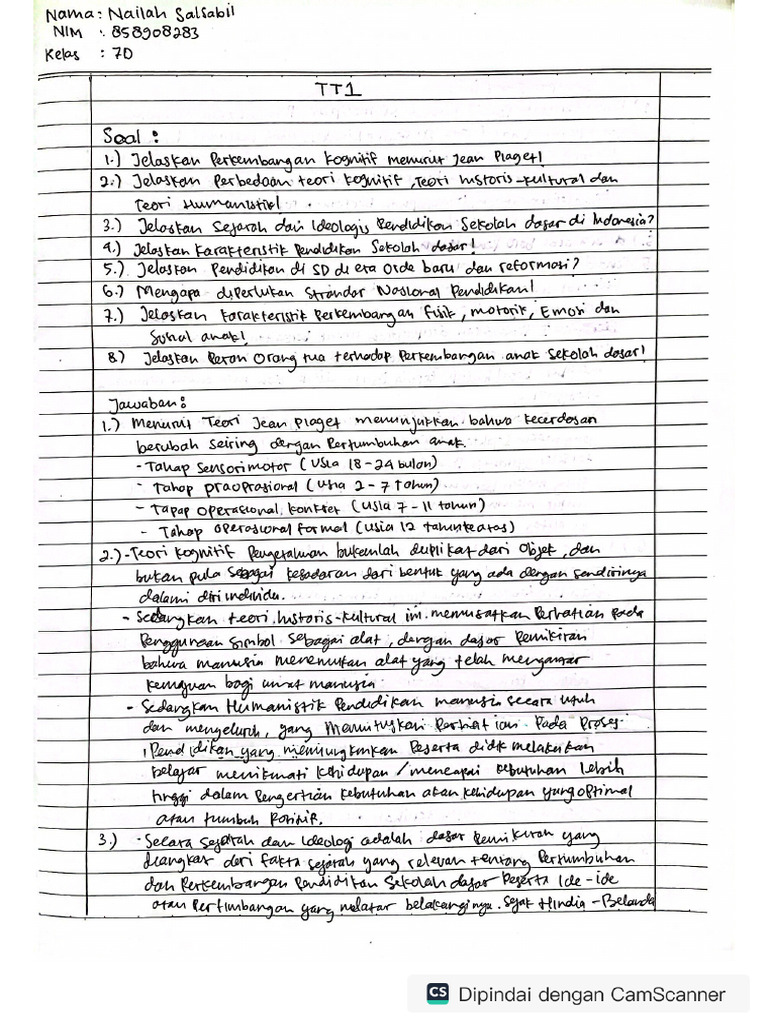 Nama: Nailah Salsabil
NIM : 858908283
Kelas : 7D
TT1
Soal :
1.) Jelaskan Perkembangan Kognitif menurut Jean Piaget!
2.) Jelaskan Perbedaan teori kognitif, Teori historis-kultural dan
Teori Humanistik!
3.) Jelaskan Sejarah dan Ideologis Pendidikan Sekolah dasar di Indonesia?
4.) Jelaskan Karakteristik Pendidikan Sekolah dasar!
5.) Jelaskan Pendidikan di SD di era Orde baru dan reformasi?
6.) Mengapa diperlukan Strandar Nasional Pendidikan!
7.) Jelaskan karakteristik Perkembangan fisik, motorik, Emosi dan
Sosial anak!
8) Jelaskan Peran Orang tua terhadap Perkembangan anak Sekolah dasar!
Jawaban :
1.) Menurut Teori Jean Piaget menunjukkan bahwa kecerdasan
berubah seiring dengan Pertumbuhan anak.
- Tahap Sensorimotor (Usia 18-24 bulan)
- Tahap praoprasional (Usia 2-7 tahun)
- Tapap operasional, konkret (Usia 7-11 tahun)
- Tahap operasional formal (Usia 12 tahun keatas)
2.) - Teori kognitif Pengetahuan bukanlah duplikat dari objek, dan
bukan pula sebagai kesadaran dari bentuk yang ada dengan sendirinya
dalam diri individu.
- Sedangkan teori historis-kultural ini memusatkan Perhatian pada
Penggunaan Simbol sebagai alat, dengan dasar Pemikiran
bahwa manusia menemukan alat yang telah mengantar
kemajuan bagi umat manusia.
- Sedangkan Humanistik Pendidikan manusia secara utuh
dan menyeluruh, yang Perhatian Pada Proses
Pendidikan yang memungkinkan Peserta didik melakukan
belajar menikmati kehidupan / mencapai kebutuhan lebih
tinggi dalam Pengertian kebutuhan akan kehidupan yang optimal
atau tumbuh Positif.
3.) - Secara sejarah dan Ideologi adalah dasar Pemikiran yang
diangkat dari fakta sejarah yang relevan tentang Pertumbuhan
dan Perkembangan Pendidikan Sekolah dasar beserta Ide-ide
atau Pertimbangan yang melatar belakanginya. Sejak Hindia-Belanda
CS Dipindai dengan CamScanner